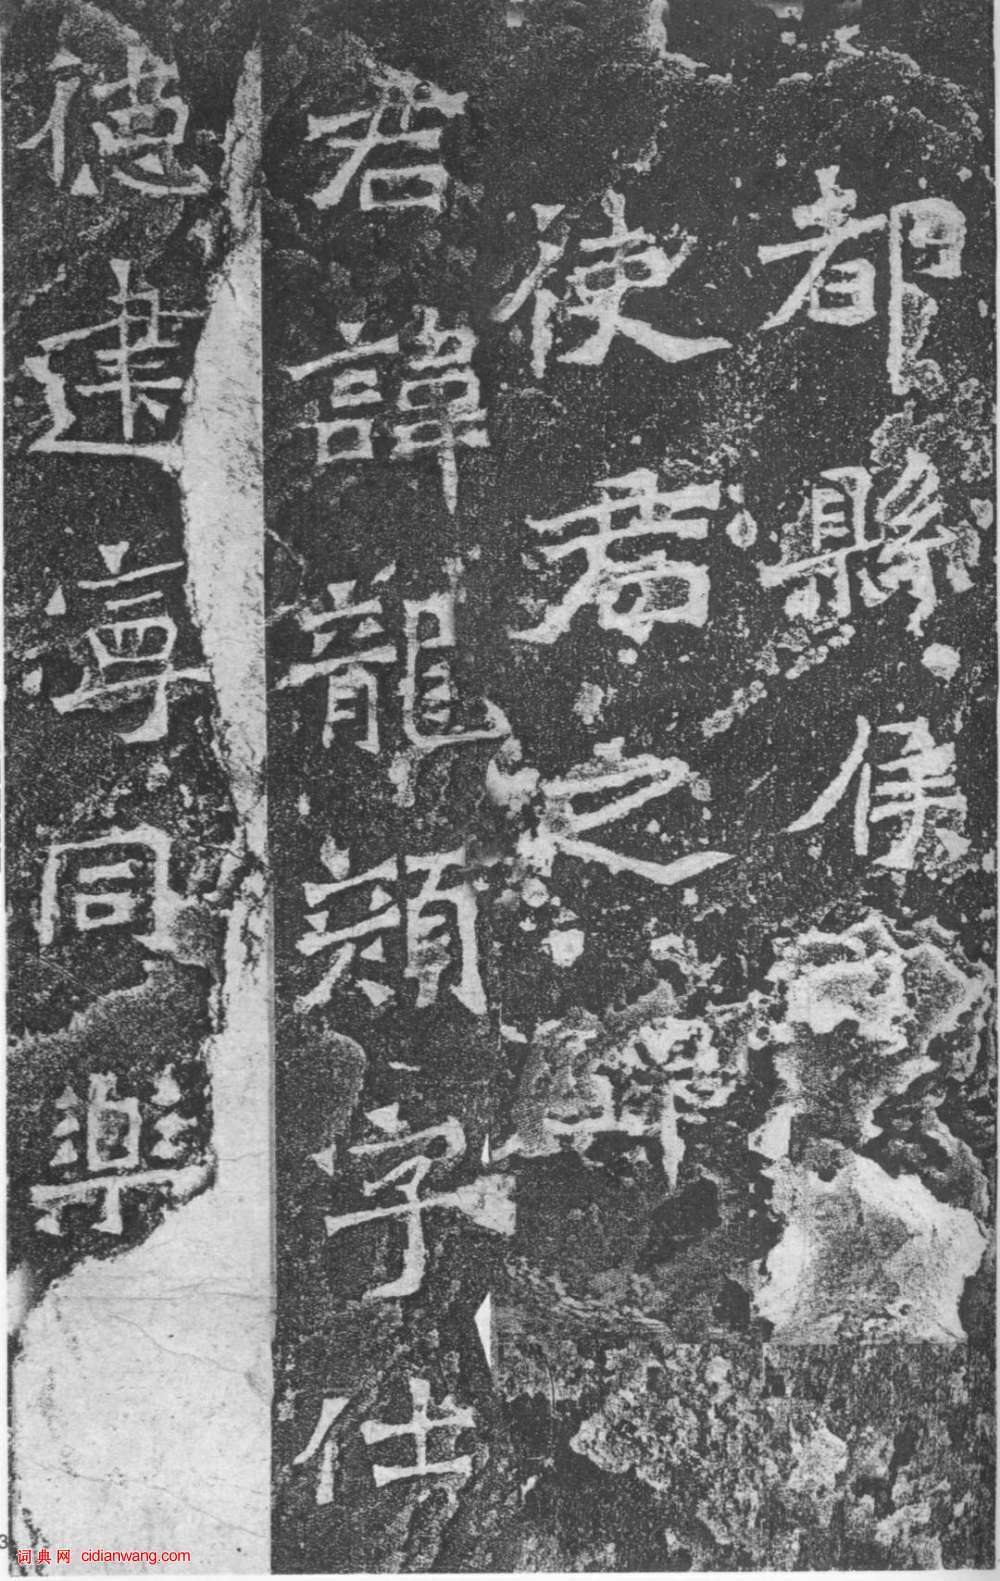 都縣侯
使君之碑
君諱龍顏字仕
德建寧同樂
3
词典网 cidianwang.com